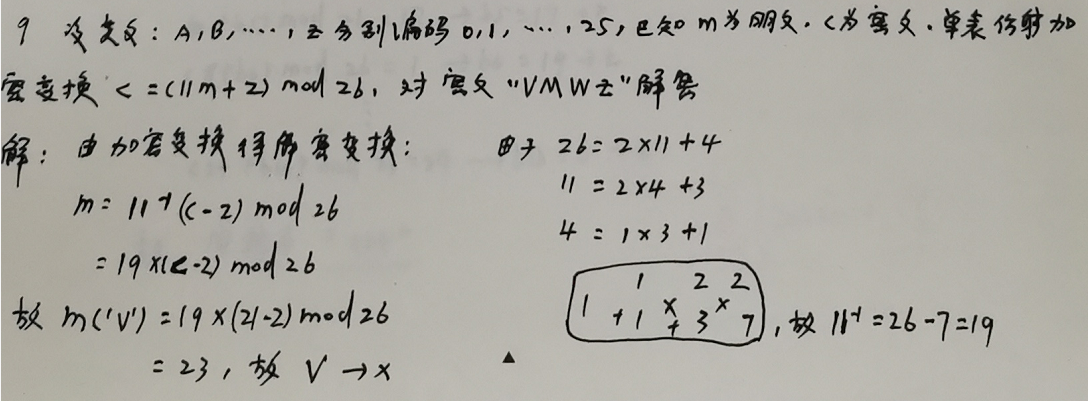 9 设定义：A,B,····，z分别编码0,1,···,25，已知m为明文．c为密文．单表仿射加
密变换 c=(11m+2) mod 26，对密文"VMWZ"解密
解：由加密变换得解密变换：
m=11⁻¹(c-2) mod 26
=19×(c-2) mod 26
故 m('V')=19×(21-2) mod 26
=23，故 V→x
由于 26=2×11+4
11=2×4+3
4=1×3+1
1 2 2
1 +1 × +3 × 7，故 11⁻¹=26-7=19
▲